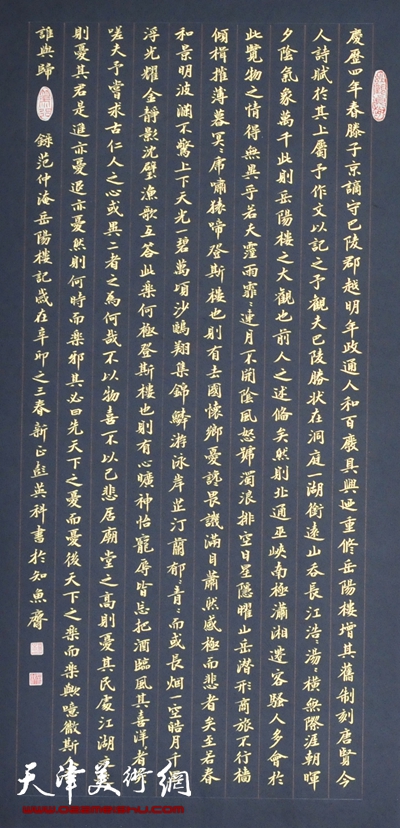 慶歷四年春滕子京謫守巴陵郡越明年政通人和百廢具興迺重修岳陽樓增其舊制刻唐賢今
人詩賦於其上屬予作文以記之予觀夫巴陵勝狀在洞庭一湖銜遠山吞長江浩〻湯〻橫無際涯朝暉
夕陰氣象萬千此則岳陽樓之大觀也前人之述備矣然則北通巫峽南極瀟湘遷客騷人多會於
此覽物之情得無異乎若夫霪雨霏〻連月不開陰風怒號濁浪排空日星隱曜山岳潛形商旅不行檣
傾楫摧薄暮冥〻虎嘯猿啼登斯樓也則有去國懷鄉憂讒畏譏滿目蕭然感極而悲者矣至若春
和景明波瀾不驚上下天光一碧萬頃沙鷗翔集錦鱗游泳岸芷汀蘭郁〻青〻而或長烟一空皓月千
浮光耀金靜影沈璧漁歌互答此樂何極登斯樓也則有心曠神怡寵辱皆忘把酒臨風其喜洋〻者
嗟夫予嘗求古仁人之心或異二者之為何哉不以物喜不以己悲居廟堂之高則憂其民處江湖
則憂其君是進亦憂退亦憂然則何時而樂耶其必曰先天下之憂而憂後天下之樂而樂歟噫微斯
誰與歸 錄范仲淹岳陽樓記歲在辛卯之三春新正彭英科書於知魚齋
天津美術網